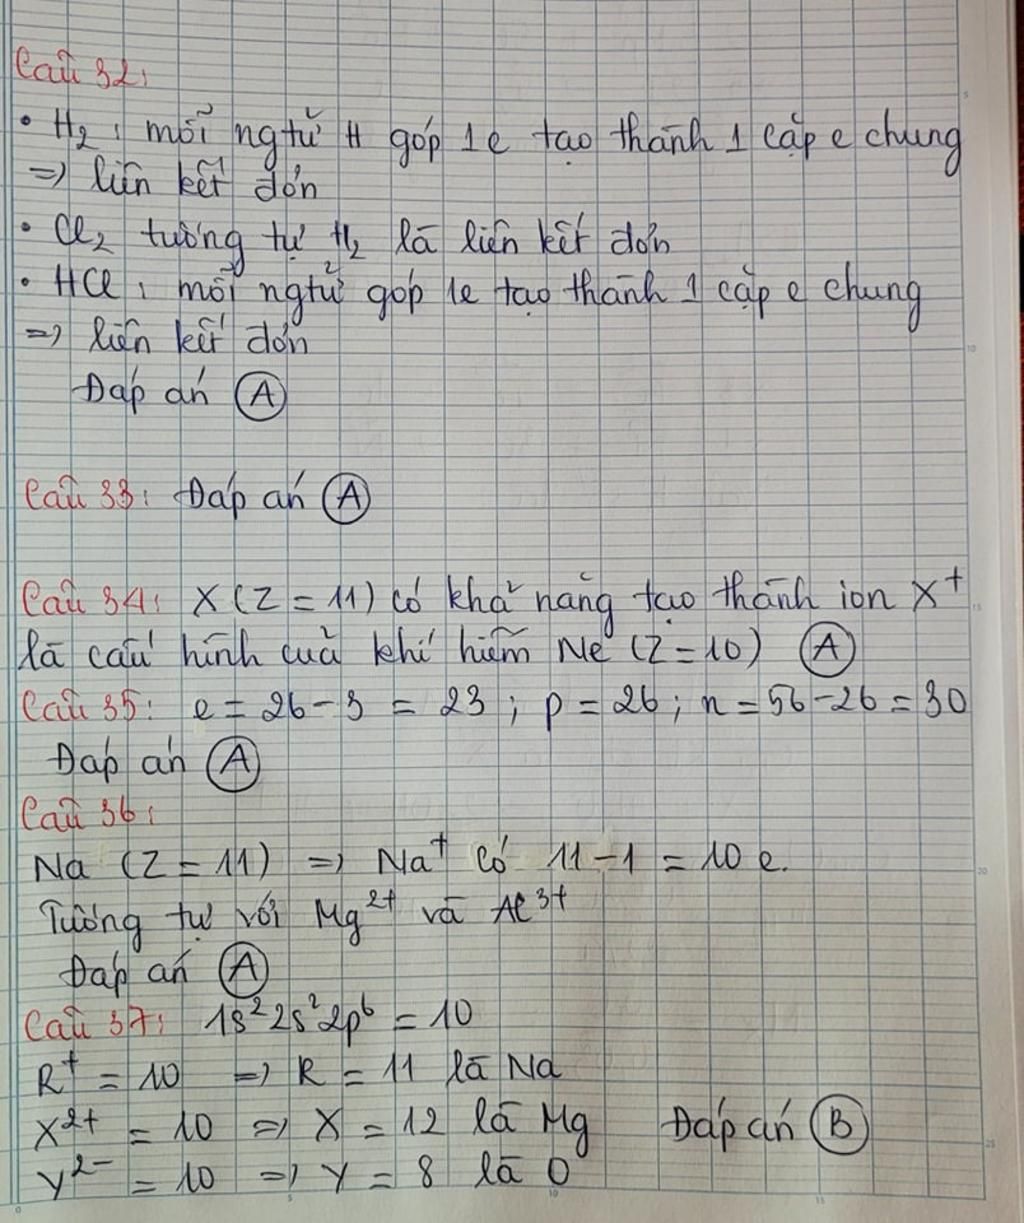 Câu 32:
• H₂: mỗi ngtử H góp 1e tạo thành 1 cặp e chung
=> liên kết đơn
• Cl₂ tương tự H₂ là liên kết đơn
• HCl: mỗi ngtử góp 1e tạo thành 1 cặp e chung
=> liên kết đơn
Đáp án Ⓐ
Câu 33: Đáp án Ⓐ
Câu 34: X (Z = 11) có khả năng tạo thành ion X⁺
là cấu hình của khí hiếm Ne (Z = 10) Ⓐ
Câu 35: e = 26 - 3 = 23 ; p = 26 ; n = 56 - 26 = 30
Đáp án Ⓐ
Câu 36:
Na (Z = 11) => Na⁺ có 11 - 1 = 10 e.
Tương tự với Mg²⁺ và Al³⁺
Đáp án Ⓐ
Câu 37: 1s²2s²2p⁶ = 10
R⁺ = 10 => R = 11 là Na
X²⁺ = 10 => X = 12 là Mg Đáp án Ⓑ
Y²⁻ = 10 => Y = 8 là O